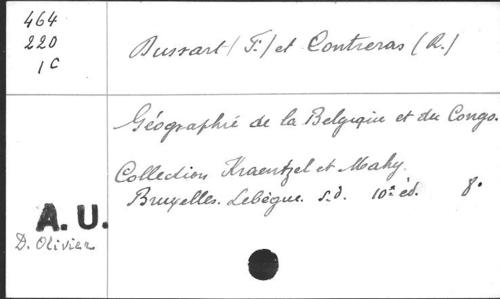 464
220
1C
Bussart (F.) et Contreras (R.)
Géographie de la Belgique et du Congo.
Collection Kraentzel et Mahy.
Bruxelles. Lebègue. s.d. 10e éd. 8°
A.U.
D. Olivier